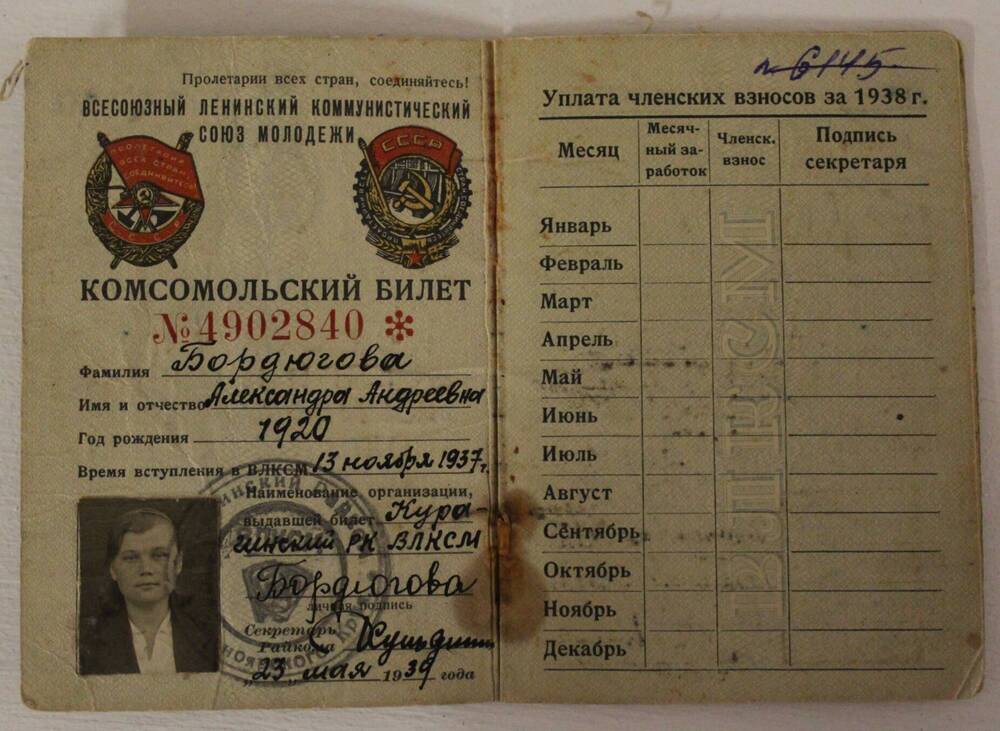 Пролетарии всех стран, соединяйтесь!
ВСЕСОЮЗНЫЙ ЛЕНИНСКИЙ КОММУНИСТИЧЕСКИЙ
СОЮЗ МОЛОДЕЖИ
ПРОЛЕТАРИИ
ВСЕХ СТРАН
СОЕДИНЯЙТЕСЬ!
СССР
СССР
КОМСОМОЛЬСКИЙ БИЛЕТ
№ 4902840 *
Фамилия Бордюгова
Имя и отчество Александра Андреевна
Год рождения 1920
Время вступления в ВЛКСМ 13 ноября 1937 г.
Наименование организации,
выдавшей билет Кура-
гинский РК ВЛКСМ
Бордюгова
личная подпись
Секретарь
Райкома
"23" мая 1939 года
№ 6145
Уплата членских взносов за 1938 г.
Месяц
Месяч-
ный за-
работок
Членск.
взнос
Подпись
секретаря
Январь
Февраль
Март
Апрель
Май
Июнь
Июль
Август
Сентябрь
Октябрь
Ноябрь
Декабрь